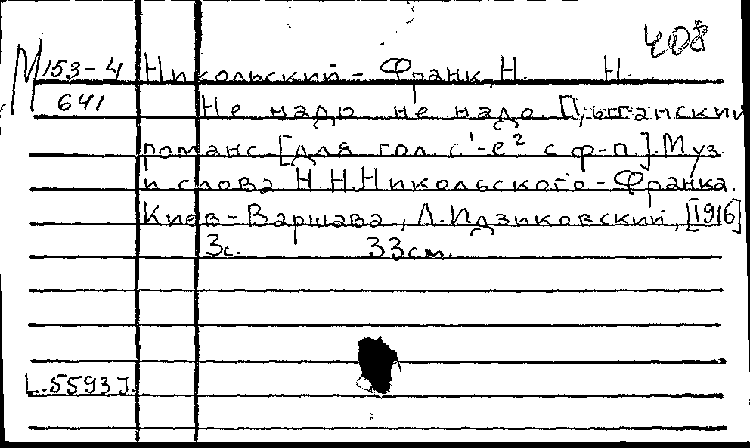 408
М 153-4 Никольский-Франк, Н. Н.
641 Не надо не надо. Цыганский
романс. [Для гол. c¹-e² с ф-п.]. Муз.
и слова Н.Н.Никольского-Франка.
Киев-Варшава, Л.Идзиковский, [1916]
3с. 33см.
L.5593J.